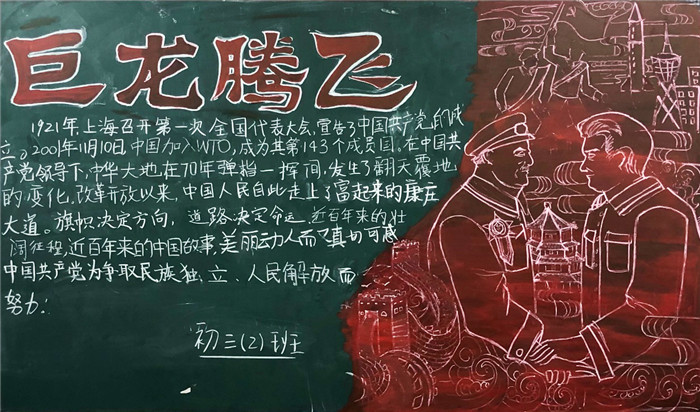 巨龙腾飞
1921年上海召开第一次全国代表大会,宣告了中国共产党的成
立。2001年11月10日中国加入WTO,成为其第143个成员国。在中国共
产党领导下,中华大地,在70年弹指一挥间,发生了翻天覆地
的变化,改革开放以来,中国人民自此走上了富起来的康庄
大道。旗帜决定方向,道路决定命运,近百年来的壮
阔征程,近百年来的中国故事,美丽动人而又真切可感
中国共产党为争取民族独、立、人民解放而
努力:
初三(2)班